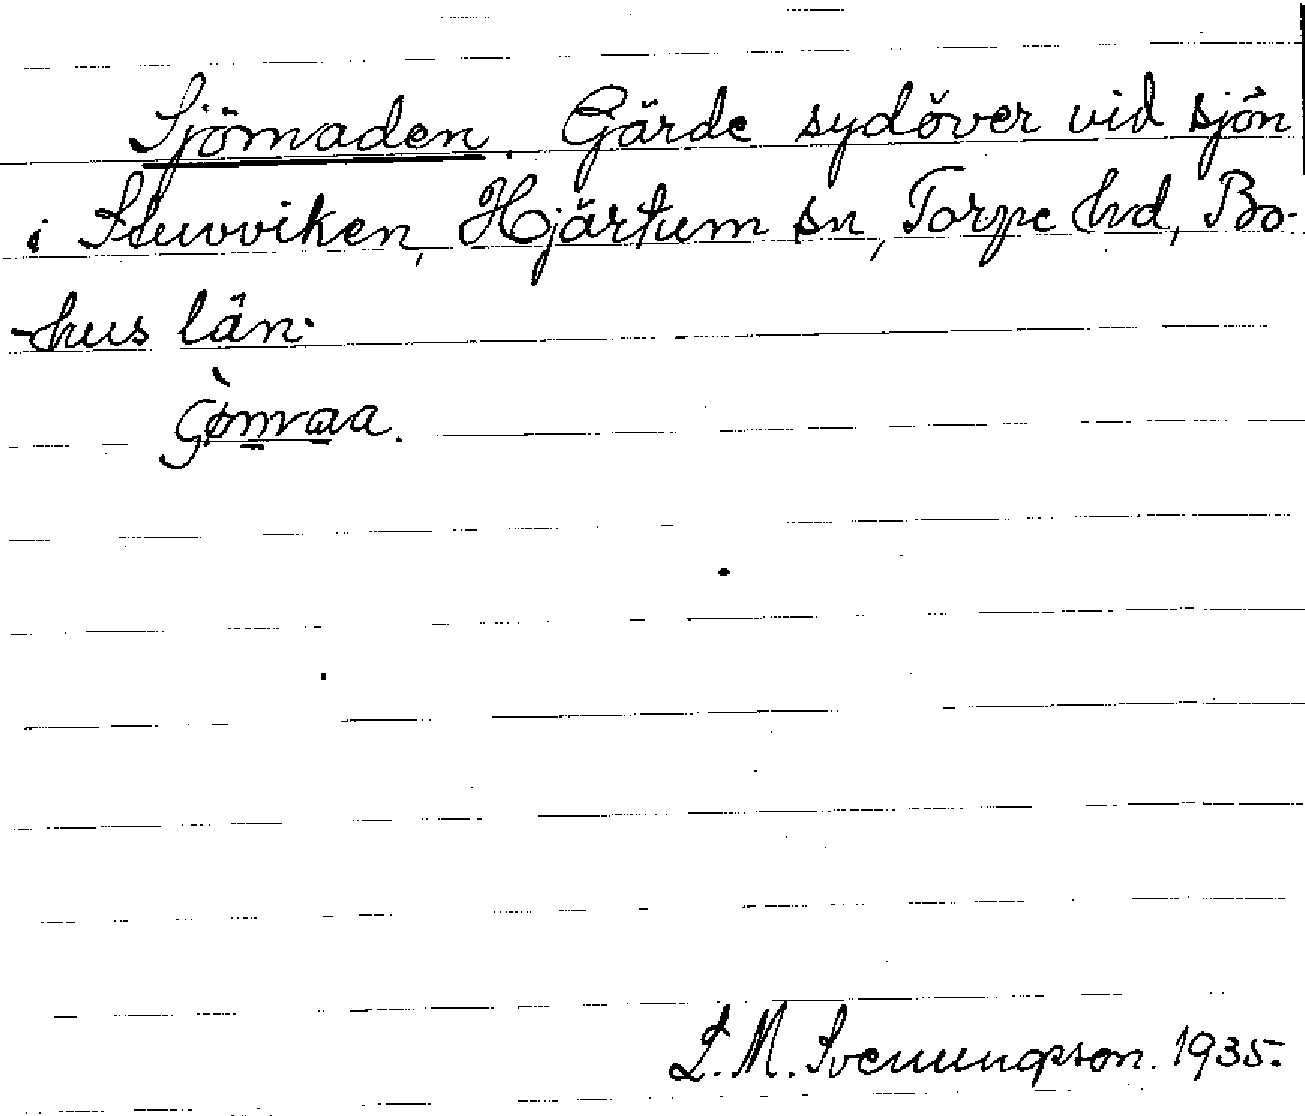 Sjömaden. Gärde sydöver vid sjön
i Stuvviken, Hjärtum sn, Torpe hd, Bo-
-hus län.
L. M. Svenungson. 1935.